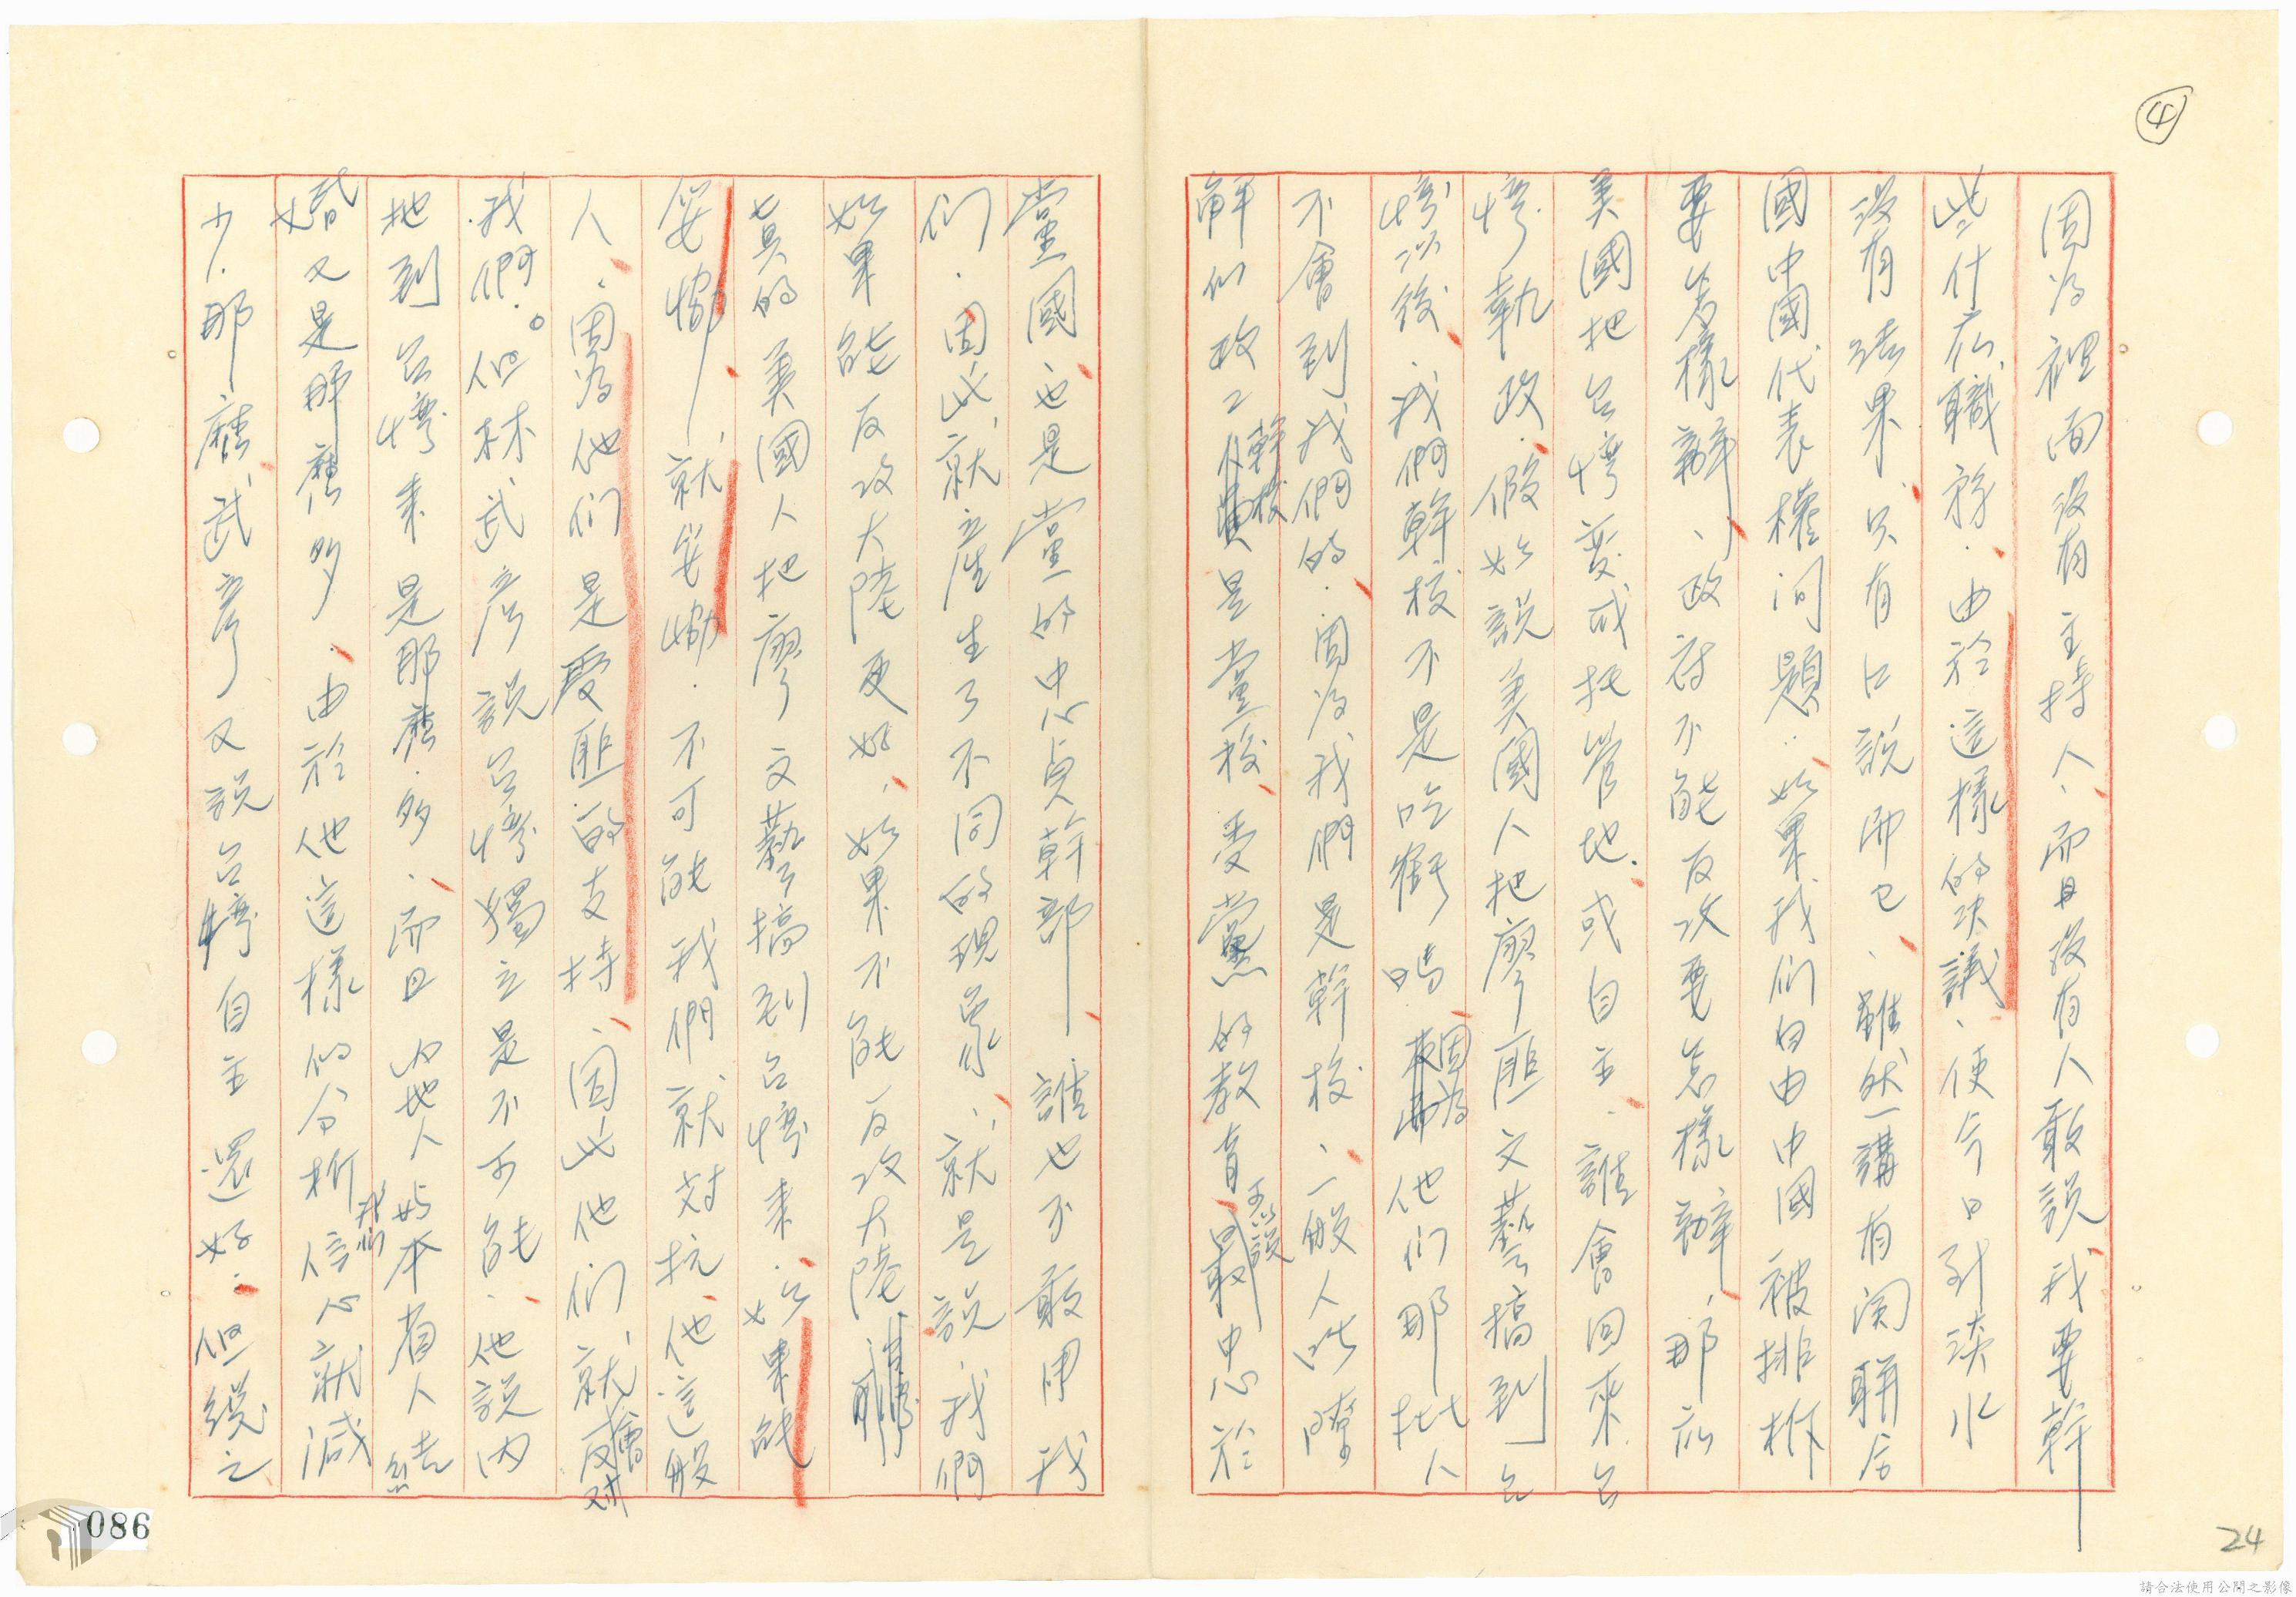 ④
因為裡面沒有主持人、而且沒有人敢說我要幹
些什麼職務.由於這樣的決議、使今日到淡水
沒有結果、只有口說而已、雖然講有関聯合
國中國代表權问題.如果我们自由中國被排拆
要怎樣辦、政府不能反攻要怎樣辦、那麼
美國把台灣变成托管地.或自主、誰會回來台
灣執政.假如說美國人把廖匪文藝搞到台
灣以後、我們幹校不是吃癟嗎 因為他们那批人
不會到我們的.因為我們是幹校、一般人以瞭
解似政工幹校是黨校、受黨的教育 忠於
黨國也是黨的中心貞幹部 誰也不敢甲我
们.因此就產生了不同的現象、就是說.我們
如果能反攻大陸更好.如果不能反攻大陸
真的美國人把廖文藝搞到台灣來.如果能
妥協 就妥協.不可能我們就对抗.他這般
人、因為他们是受匪的支持、因此他们就會反对
我們。但林武彥說台灣獨立是不可能.他說內
地到台灣來是那麼多、而且內地人與本省人結
婚又是那麼多、由於他這樣的分析我们信心就減
少.那麼武彥又說台灣自主還好.但總之
086
24
請合法使用公開之影像